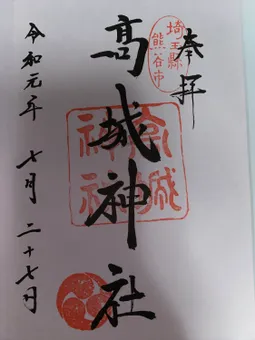 奉拝
埼玉縣
熊谷市
髙城神社
令和元年 七月 二十七日